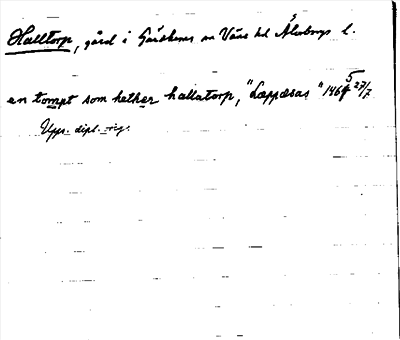 Halltorp, gård i Gäsdhems sn Väne hd Älvsborgs l.
en tompt som hether hallatorp, "Læppæsas" 1465 27/7
Upps. dipl. orig.